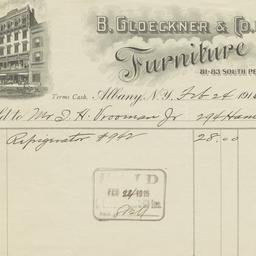 B. GLOECKNER & CO.
Furniture
81-83 SOUTH PE
Terms Cash. Albany, N.Y. Feb 24 191
Mr. I. H. Vrooman Jr 294 Ham
Refrigerator #962 28.00
FEB 24 1915